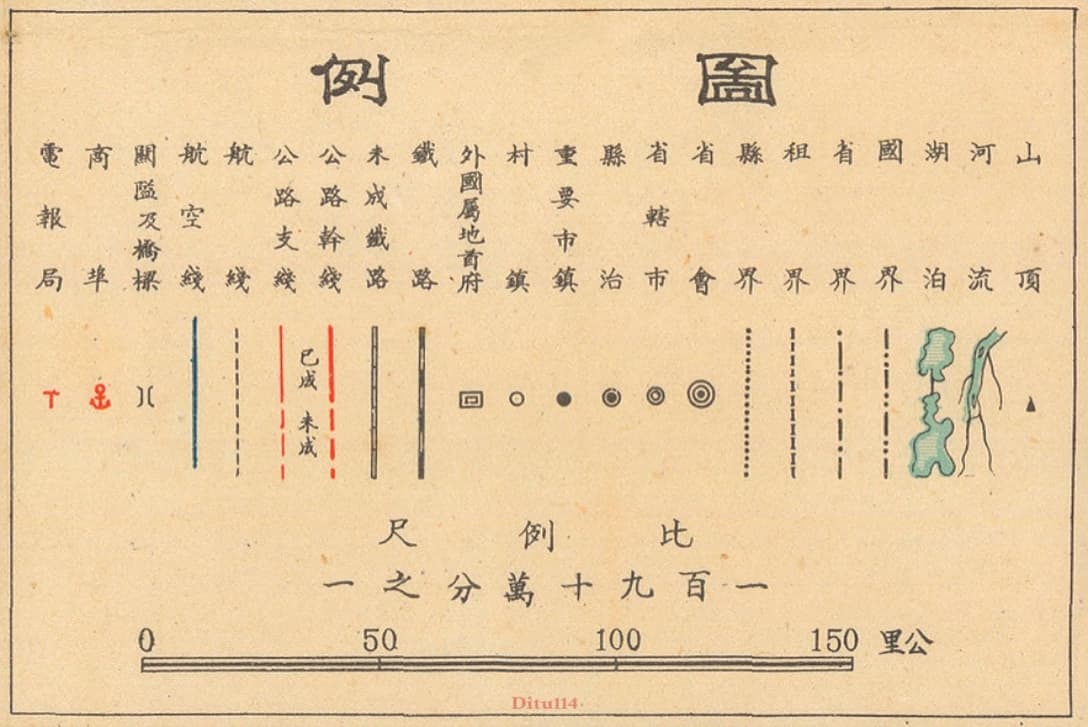 圖例
山頂
河流
湖泊
國界
省界
租界
縣界
省會
省轄市
縣治
重要市鎮
村鎮
外國屬地首府
鐵路
未成鐵路
公路幹綫
公路支綫
航綫
航空綫
關隘及橋樑
商埠
電報局
已成
未成
比例尺
一百九十萬分之一
0 50 100 150 公里
Ditu114